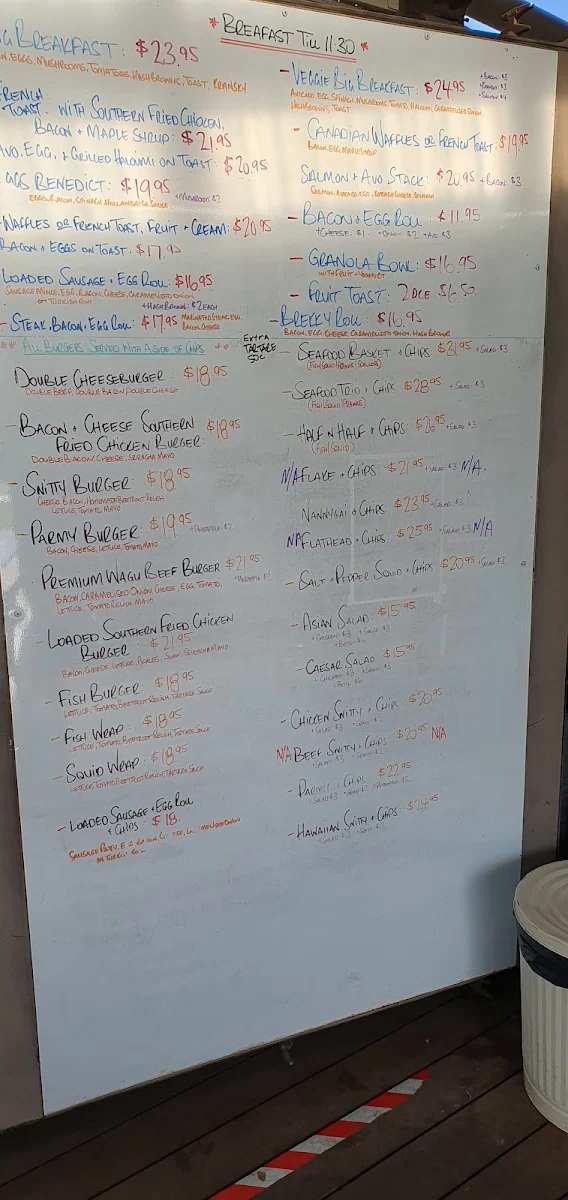 * BREAFAST TILL 11.30 *
BREAKFAST: $23.95
EGGS, MUSHROOMS, TOMATOES, HASHBROWNS, TOAST, KRANSKY
FRENCH
TOAST. WITH SOUTHERN FRIED CHICKEN,
BACON + MAPLE SYRUP: $21.95
AVO, EGG, + GRILLED HALOUMI ON TOAST: $20.95
EGGS BENEDICT: $19.95 + MUSHROOM: $2
EGGS, BACON, SPINACH HOLLANDAISE SAUCE
- WAFFLES OR FRENCH TOAST, FRUIT + CREAM: $20.95
BACON + EGGS ON TOAST: $17.95
LOADED SAUSAGE + EGG ROLL: $16.95
SAUSAGE MINCE, EGG, BACON, CHEESE, CARAMELISED ONION
ON TURKISH ROLL + HASH BROWN: $2 EACH
- STEAK, BACON, EGG ROLL: $17.95 MARINATED STEAK, EGG,
BACON, CHEESE
- VEGGIE BIG BREAKFAST: $24.95
AVOCADO, EGG, SPINACH, MUSHROOMS, TOMATO, HALOUMI, CARAMELISED ONION,
HASHBROWNS, TOAST
+ BACON $3
+ SALMON $4
- CANADIAN WAFFLES OR FRENCH TOAST: $19.95
BACON, EGG, MAPLE SYRUP
SALMON + AVO STACK: $20.95 + BACON $3
SALMON, AVOCADO, EGG, COTTAGE CHEESE, SPINACH
- BACON + EGG ROLL: $11.95
+ CHEESE: $1 - + ONION $2 + AVO. $3
- GRANOLA BOWL: $16.95
WITH FRUIT + YOGHURT
- FRUIT TOAST: 2 PCE $6.50
- BREKKY ROLL: $16.95
BACON, EGG, CHEESE, CARAMELISED ONION, HASH BROWNS
** ALL BURGERS SERVED WITH A SIDE OF CHIPS **
EXTRA
TARTARE
50C
DOUBLE CHEESEBURGER: $18.95
DOUBLE BEEF, DOUBLE BACON, DOUBLE CHEESE
- BACON + CHEESE SOUTHERN
FRIED CHICKEN BURGER: $18.95
DOUBLE BACON, CHEESE, SRIRACHA MAYO
- SNITTY BURGER: $18.95
CHEESE, BACON, HOMEMADE BEETROOT RELISH
LETTUCE, TOMATO, MAYO
- PARMY BURGER: $19.95 + PINEAPPLE: $2
BACON, CHEESE, LETTUCE, TOMATO, MAYO
PREMIUM WAGU BEEF BURGER $21.95
BACON, CARAMELISED ONION, CHEESE, EGG, TOMATO,
LETTUCE, TOMATO RELISH, MAYO
- LOADED SOUTHERN FRIED CHICKEN
BURGER: $21.95
BACON, CHEESE, LETTUCE, APPLES, SLAW, SRIRACHA MAYO
- FISH BURGER: $18.95
LETTUCE, TOMATO, BEETROOT RELISH, TARTARE SAUCE
- FISH WRAP: $18.95
LETTUCE, TOMATO, BEETROOT RELISH, TARTARE SAUCE
- SQUID WRAP: $18.95
LETTUCE, TOMATO, BEETROOT RELISH, TARTARE SAUCE
- LOADED SAUSAGE + EGG ROLL
+ CHIPS: $18.
SAUSAGE PATTY, EGG, BACON, ONION
ON TURKISH ROLL
- SEAFOOD BASKET + CHIPS $31.95 + SALAD $3
- SEAFOOD TRIO + CHIPS $28.95 + SALAD $3
(FISH/SQUID/PRAWNS)
- HALF N HALF + CHIPS: $26.95 + SALAD $3
(FISH/SQUID)
N/A FLAKE + CHIPS: $21.95 + SALAD $3 N/A.
NANNYGAI + CHIPS $23.95 + SALAD $3
NA FLATHEAD + CHIPS $25.95 + SALAD $3 N/A
- SALT + PEPPER SQUID + CHIPS $20.95 + SALAD $3
- ASIAN SALAD $15.95
+ CHICKEN $3 + SQUID $3
- CAESAR SALAD $15.95
+ CHICKEN $3 + SQUID $3
- CHICKEN SNITTY + CHIPS $20.95
+ SALAD $3 + GRAVY $2
N/A BEEF SNITTY + CHIPS $20.95 N/A
+ SALAD $3 + GRAVY $2
- PARMY + CHIPS $22.95
+ SALAD $3 + GRAVY $2
- HAWAIIAN SNITTY + CHIPS $24.95
+ SALAD $3 + GRAVY $2